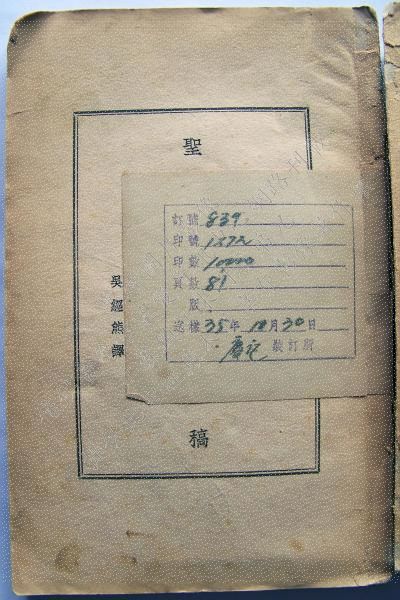 聖
吳經熊譯
稿
訂號 839
印號 1572
印數 10000
頁數 81
版
送樣 35年 12月30日
裝訂所